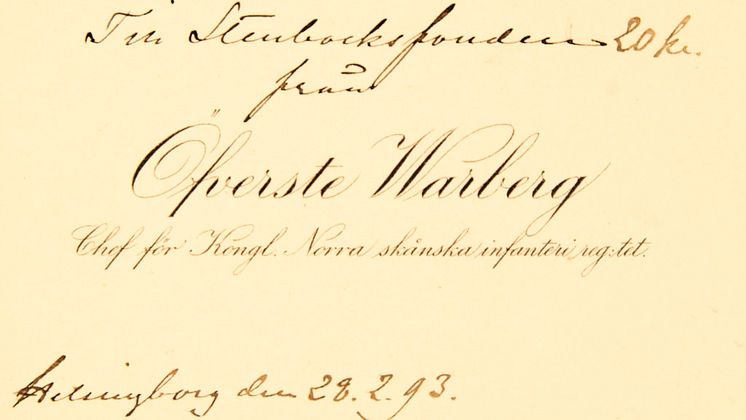 Till Stenbocksfonden 20 kr.
från
Öfverste Warberg
Chef för Kongl. Norra skånska infanteri reg:tet.
Helsingborg den 28.2.93.